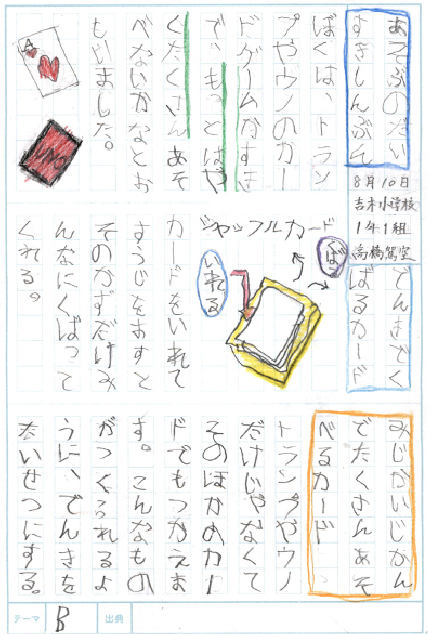 あそぶのだい
すきしんぶん
8月10日
吉木小学校
1年1組
高橋
ぼくは、トラン
プやウノのカー
ドゲームがすき
で、もっとはや
くたくさんあそ
べないかなとお
もいました。
A
UNO
でんきでく
ばるカード
シャッフルカード
くばる
いれる
カードをいれて
すうじをおすと
そのかずだけみ
んなにくばって
くれる。
みじかいじかん
でたくさんあそ
べるカード
トランプやウノ
だけじゃなくて
そのほかのカー
ドでもつかえま
す。こんなもの
がつくれるよ
うに、でんきを
たいせつにする。
テーマ B 出典